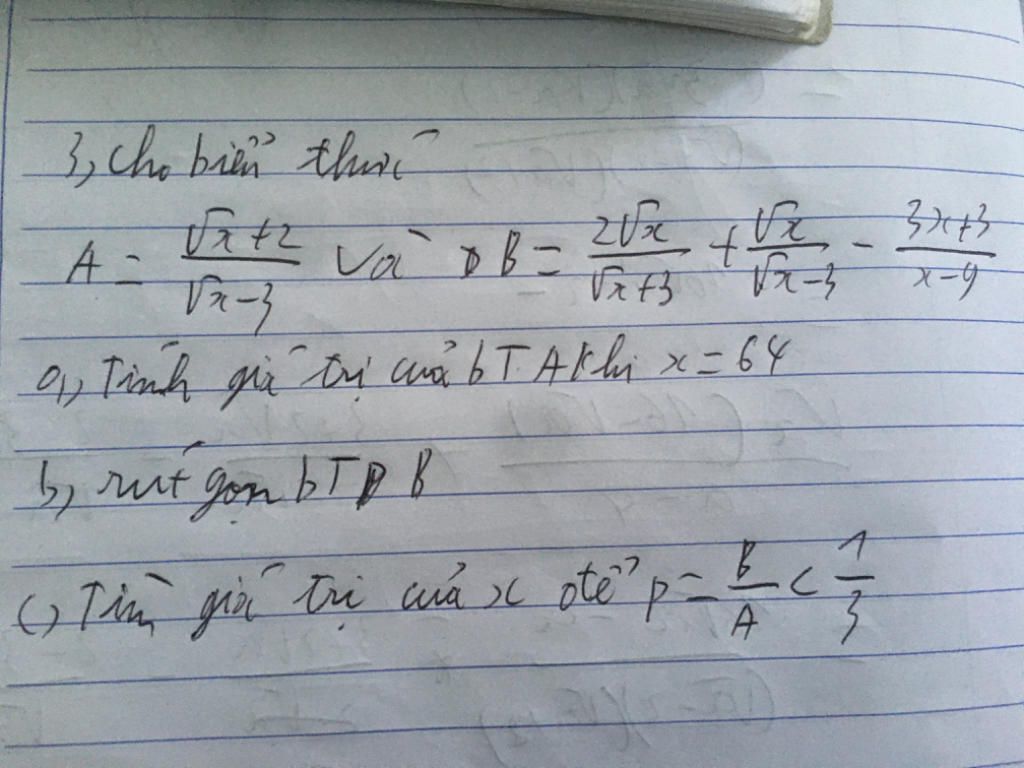 3, Cho biểu thức
A = \frac{\sqrt{x}+2}{\sqrt{x}-3} và B = \frac{2\sqrt{x}}{\sqrt{x}+3} + \frac{\sqrt{x}}{\sqrt{x}-3} - \frac{3x+3}{x-9}
a, Tính giá trị của bT A khi x = 64
b, rút gọn bT B
c, Tìm giá trị của x để P = \frac{B}{A} < \frac{1}{3}